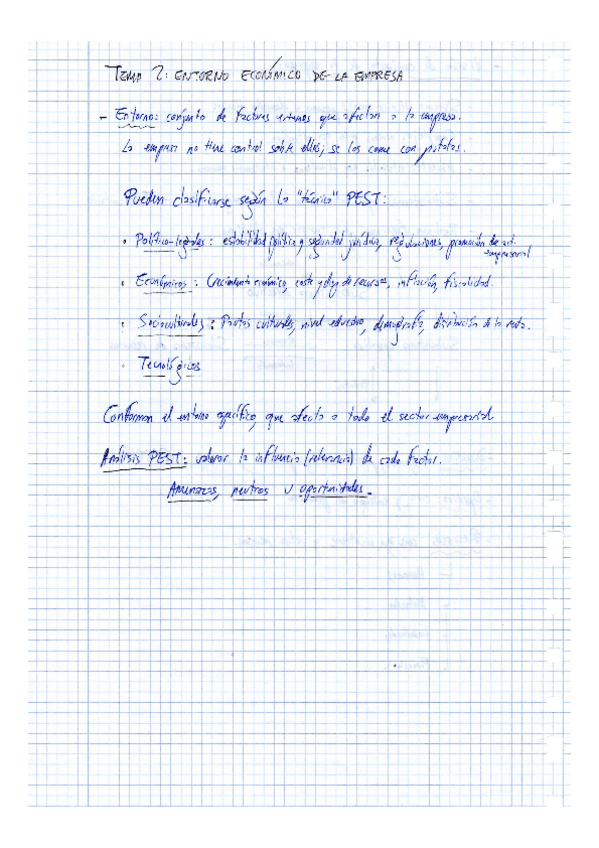 TEMA 2: ENTORNO ECONÓMICO DE LA EMPRESA
- Entorno: conjunto de factores externos que afectan a la empresa.
La empresa no tiene control sobre ellos; se los come con patatas.
Pueden clasificarse según la "técnica" PEST:
• Político-legales: estabilidad política y seguridad jurídica, regulaciones, promoción de act.
empresarial
• Económicos: Crecimiento económico, coste y disp de recursos, inflación, fiscalidad.
• Socioculturales: Pautas culturales, nivel educativo, demografía, distribución de la renta.
• Tecnológicos
Conforman el entorno específico, que afecta a todo el sector empresarial
Análisis PEST: valorar la influencia (relevancia) de cada factor.
Amenazas, neutros u oportunidades.